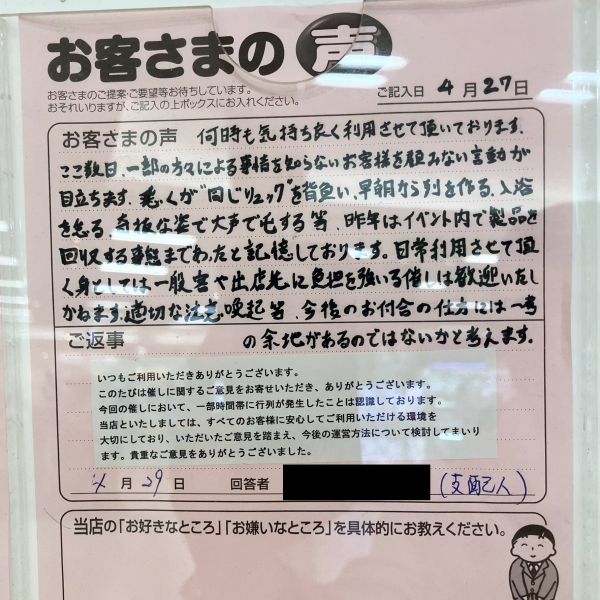 お客さまの声
お客さまのご提案・ご要望等お待ちしています。
おそれいりますが、ご記入の上ボックスにお入れください。
ご記入日 4月27日
お客さまの声 何時も気持ち良く利用させて頂いております.
ここ数日、一部の方々による事情を知らないお客様を顧みない言動が
目立ちます. 悉くが"同じリュック"を背負い、早朝から列を作る、入浴
を怠る、奇抜な姿で大声で する等、昨年はイベント内で製品を
回収する事態までわたと記憶しております。日常利用させて頂
く身としては一般客や出店先に負担を強いる催しは歓迎いたし
かねます.適切な注意喚起等、今後のお付合の仕方には一考
ご返事 の余地があるのではないかと考えます.
いつもご利用いただきありがとうございます。
このたびは催しに関するご意見をお寄せいただき、ありがとうございます。
今回の催しにおいて、一部時間帯に行列が発生したことは認識しております。
当店といたしましては、すべてのお客様に安心してご利用いただける環境を
大切にしており、いただいたご意見を踏まえ、今後の運営方法について検討してまいり
ます。貴重なご意見をありがとうございました。
4月29日 回答者 (支配人)
当店の「お好きなところ」「お嫌いなところ」を具体的にお教えください。